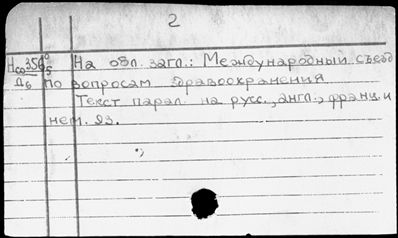 2
Нсо356 На обл. загл.: Международный съезд
Д6 по вопросам здравоохранения
Текст парал. на русс., англ., франц. и
нем. яз.